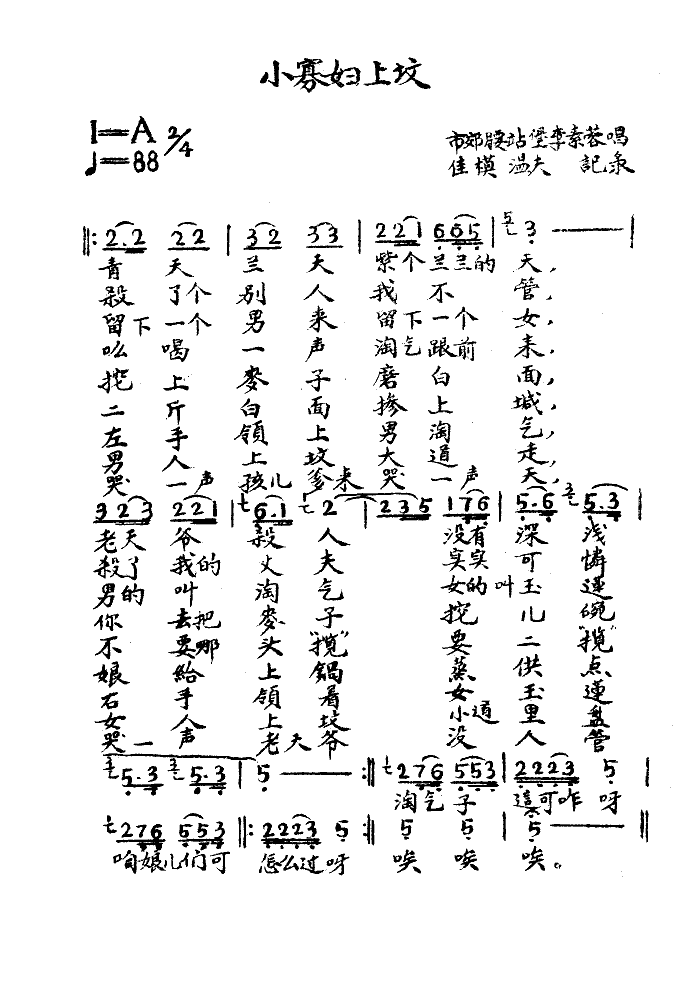 小寡妇上坟
1=A 2/4
♩=88
市郊腰站堡李素蓉唱
佳模 温夫 記录
‖: 2·2 2 2 | 3 2 3 3 | 2 2 1 6 6 5 | 3 — |
青 天 兰 天 紫个兰兰的 天,
殺 了个 别 人 我 不 管,
留下 一个 男 来 留下 一个 女,
吆 喝 一 声 淘气 跟前 来,
挖 上 麥 子 磨 白 面,
二 斤 白 面 掺 上 堿,
左 手 領 上 男 淘 气,
男 人 上 坟 大 道 走,
哭 一声 孩儿 爹来 哭 一声 天,
3 2 3 2 2 1 | 6·1 2 | 2 3 5 1 7 6 | 5·6 5·3
老天 爷 殺 人 没有 深 浅
殺了 我的 丈 夫 实实 可 憐
男的 叫 淘 气 女的 叫 玉 蓮
你 去把 麥 子 挖 儿 碗
不 要那 头 "揽" 要 二 "揽"
娘 給 上 鍋 蒸 供 点
右 手 領 着 女 玉 蓮
女 人 上 坟 小道 里 盘
哭一 声 老天 爷 没 人 管
5·3 5·3 | 5 — :‖ 2 7 6 5 5 3 | 2 2 2 3 5 |
淘气 子 這可咋 呀
2 7 6 5 5 3 ‖: 2 2 2 3 5 :‖ 5 5 | 5 — ‖
咱娘儿们可 怎么过呀 唉 唉 唉。